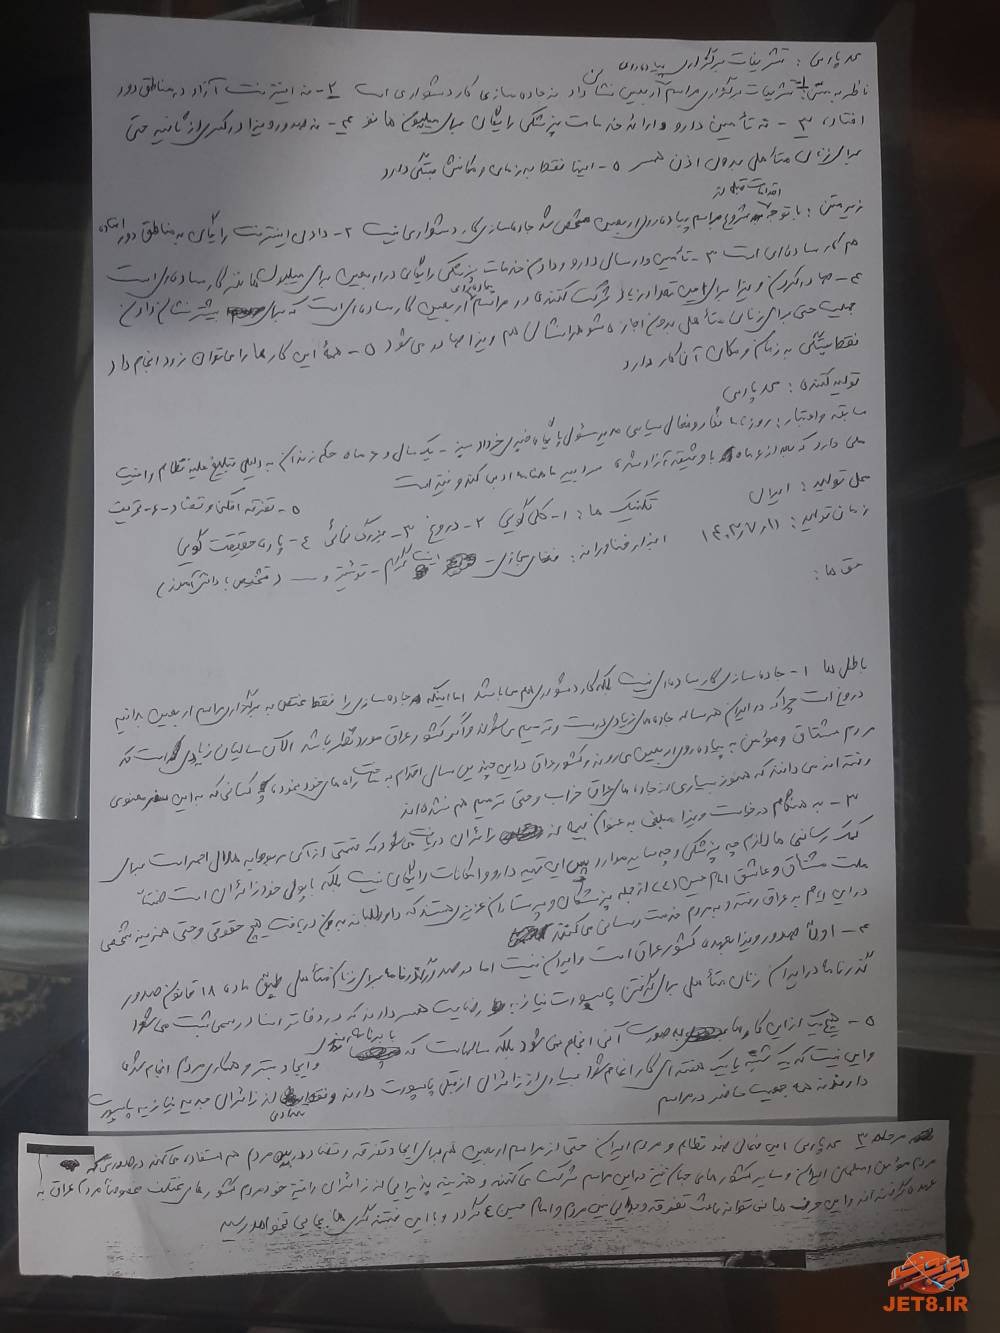 محمد پارسی : تشریفات برگزاری پیاده‌روی
ناظر به متن: ۱- تشریفات برگزاری مراسم اربعین نشان داد نه جاده سازی کار دشواری است ۲- نه اینترنت آزاد در مناطق دور
افتاده ۳- نه تأمین دارو و ارائه خدمات پزشکی رایگان برای میلیون ها نفر ۴- نه صدور ویزا در کسری از ثانیه حتی
برای زنان متأهل بدون اذن همسر ۵- اینها فقط به زمان و مکانش بستگی دارد
اقدامات قبل از
زیر متن : با توجه به شروع مراسم پیاده‌روی اربعین مشخص شد جاده‌سازی کار دشواری نیست ۲- دادن اینترنت رایگان به مناطق دور افتاده
هم کار ساده‌ای است ۳- تأمین و ارسال دارو و دادن خدمات پزشکی رایگان در اربعین برای میلیون ها نفر کار ساده‌ای است
۴- صادر کردن ویزا برای این تعداد زیاد شرکت کننده در مراسم پیاده‌روی اربعین کار ساده‌ای است که برای بیشتر نشان دادن
جمعیت حتی برای زنان متأهل بدون اجازه شوهرانشان هم ویزا صادر می شود ۵- همهٔ این کارها را می‌توان زود انجام داد
فقط بستگی به زمان و مکان آن کار دارد
تولید کننده : محمد پارسی
سابقه و اعتبار : روزنامه نگار و فعال سیاسی مدیر مسئول پایگاه خبری خرداد سبز - یک سال و ۶ ماه حکم زندان به دلیل تبلیغ علیه نظام و امنیت
ملی دارد که بعد از ۶ ماه با وثیقه آزاد شد، سردبیر ماهنامه ادبی کندو نیز است
محل تولید : ایران
تکنیک ها : ۱- کلی گویی ۲- دروغ ۳- بزرگ نمائی ۴- پاره حقیقت گویی ۵- تفرقه افکنی و تضاد ۶-
زمان تولید : ۱۴۰۳/۷/۱۱
ابزار فناورانه : فضای مجازی - اینستاگرام - توئیتر و --- (تشخیص با دانش‌آموز)
حق ها :
باطل ها ۱- جاده سازی کار ساده‌ای نیست بلکه کار دشواری هم می باشد اما اینکه جاده سازی را فقط مختص به برگزاری مراسم اربعین بدانیم
دروغ است چرا که در ایران هر ساله جاده های زیادی درست و ترمیم می شوند و اگر کشور عراق مورد نظر باشد الان سالیان زیادی است که
مردم مشتاق و مؤمن به پیاده روی اربعین می روند و کشور عراق در این چندین سال اقدام به ساخت راه های خود نموده، کسانی که به این سفر معنوی
رفته اند می دانند که هنوز بسیاری از جاده های عراق خراب و حتی ترمیم هم نشده‌اند
۳- به هنگام درخواست ویزا مبلغی به عنوان بیمه از زائران دریافت می شود که قسمتی از آن مربوط به هلال احمر است برای
کمک رسانی ها لازم چه پزشکی و چه سایر موارد پس این تهیه دارو و امکانات رایگان نیست بلکه با پول خود زائران است ضمناً
ملت مشتاق و عاشق امام حسین (ع) از جمله پزشکان و پرستاران عزیزی هستند که داوطلبانه بدون دریافت هیچ حقوقی و حتی هزینه شخصی
در این ایام به عراق رفته و به مردم خدمت رسانی می کنند
۴- اولاً صدور ویزا بعهده کشور عراق است و ایران نیست اما در صدور گذرنامه برای زنان متأهل طبق ماده ۱۸ قانون صدور
گذرنامه در ایران زنان متأهل برای گرفتن پاسپورت نیاز به رضایت همسر دارند که در دفاتر اسناد رسمی ثبت می شود
۵- هیچ یک از این کارها به صورت آنی انجام نمی شود بلکه سالهاست که با برنامه‌ریزی و ایجاد بستر و همکاری مردم انجام شده
و این نیست که یک شبه یا یک هفته ای کار انجام شود بسیاری از زائران از قبل پاسپورت دارند و فقط تعدادی از زائران جدید نیاز به پاسپورت
دارند نه همه جمعیت حاضر در مراسم
مرحله ۳ محمد پارسی با این فعال ضد نظام و مردم ایران حتی از مراسم اربعین هم برای ایجاد تفرقه و تضاد در بین مردم هم استفاده می کند در صورتی که
مردم مؤمن و مسلمان ایران و سایر کشورهای جهان نیز در این مراسم شرکت می کنند و هزینه پذیرایی از زائران را نیز خود مردم کشورهای مختلف خصوصاً مردم عراق به
عهده گرفته اند و این حرف ها نمی تواند باعث تفرقه و جدایی بین مردم و امام حسین ع گردد و با این فتنه گری ها بجایی نخواهد رسید
JET8.IR